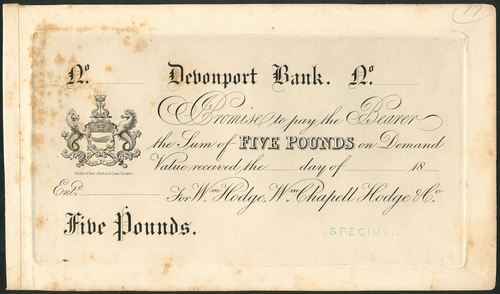 17
No. Devonport Bank. No.
Promise to pay the Bearer
the Sum of FIVE POUNDS on Demand
Value received the day of 18
Entd.
For Wm. Hodge, Wm. Chapell Hodge & Co.
Five Pounds.
SPECIMEN